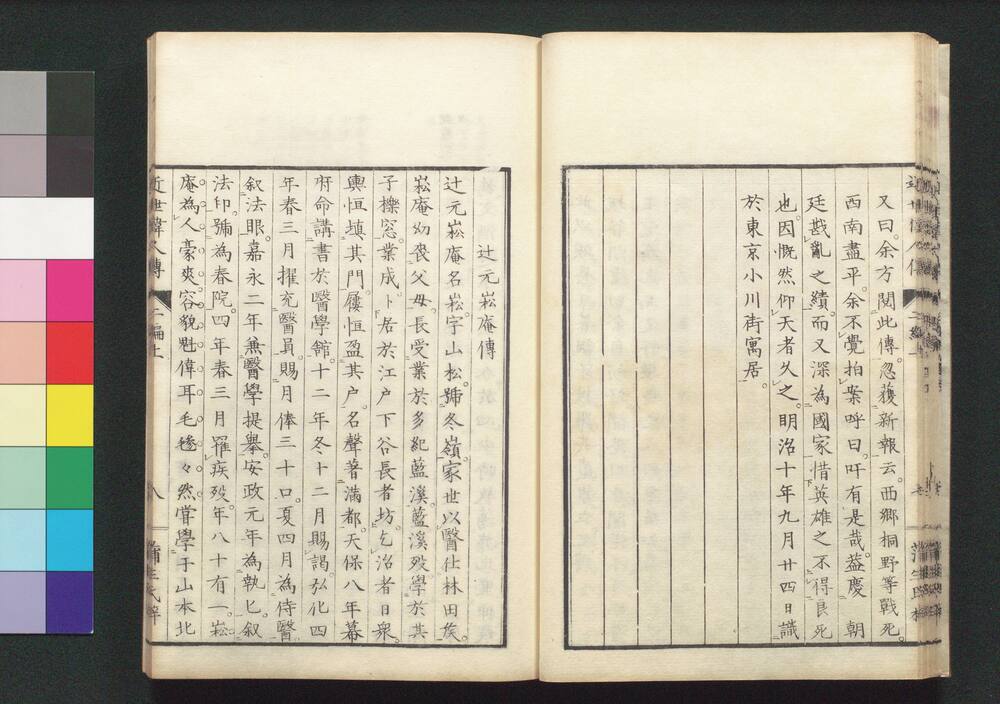 又曰。余方閲此傳。忽獲新報云。西郷桐野等戰死。
西南盡平。余不覺拍案呼曰。吁有是哉。益慶 朝
廷戡亂之績。而又深為國家惜英雄之不得良死
也。因慨然仰天者久之。明治十年九月廿四日識
於東京小川街寓居。
辻元崧庵傳
辻元崧庵名崧。字山松。號冬嶺。家世以醫仕林田矦。
崧庵幼喪父母。長受業於多紀藍溪。藍溪歿學於其
子櫟窓。業成。卜居於江戸下谷長者坊。乞治者日衆。
輿恒塡其門。屨恒盈其戸。名聲著滿都。天保八年幕
府命講書於醫學館。十二年冬十二月賜謁。弘化四
年春三月擢充醫員。賜月俸三十口。夏四月為侍醫
叙法眼。嘉永二年兼醫學提擧。安政元年為執匕叙
法印。號為春院。四年春三月罹疾歿。年八十有一。崧
庵為人豪爽。容貌魁偉。耳毛毿々然。嘗學于山本北
近世偉人傳 二編上 八 蒲生氏梓